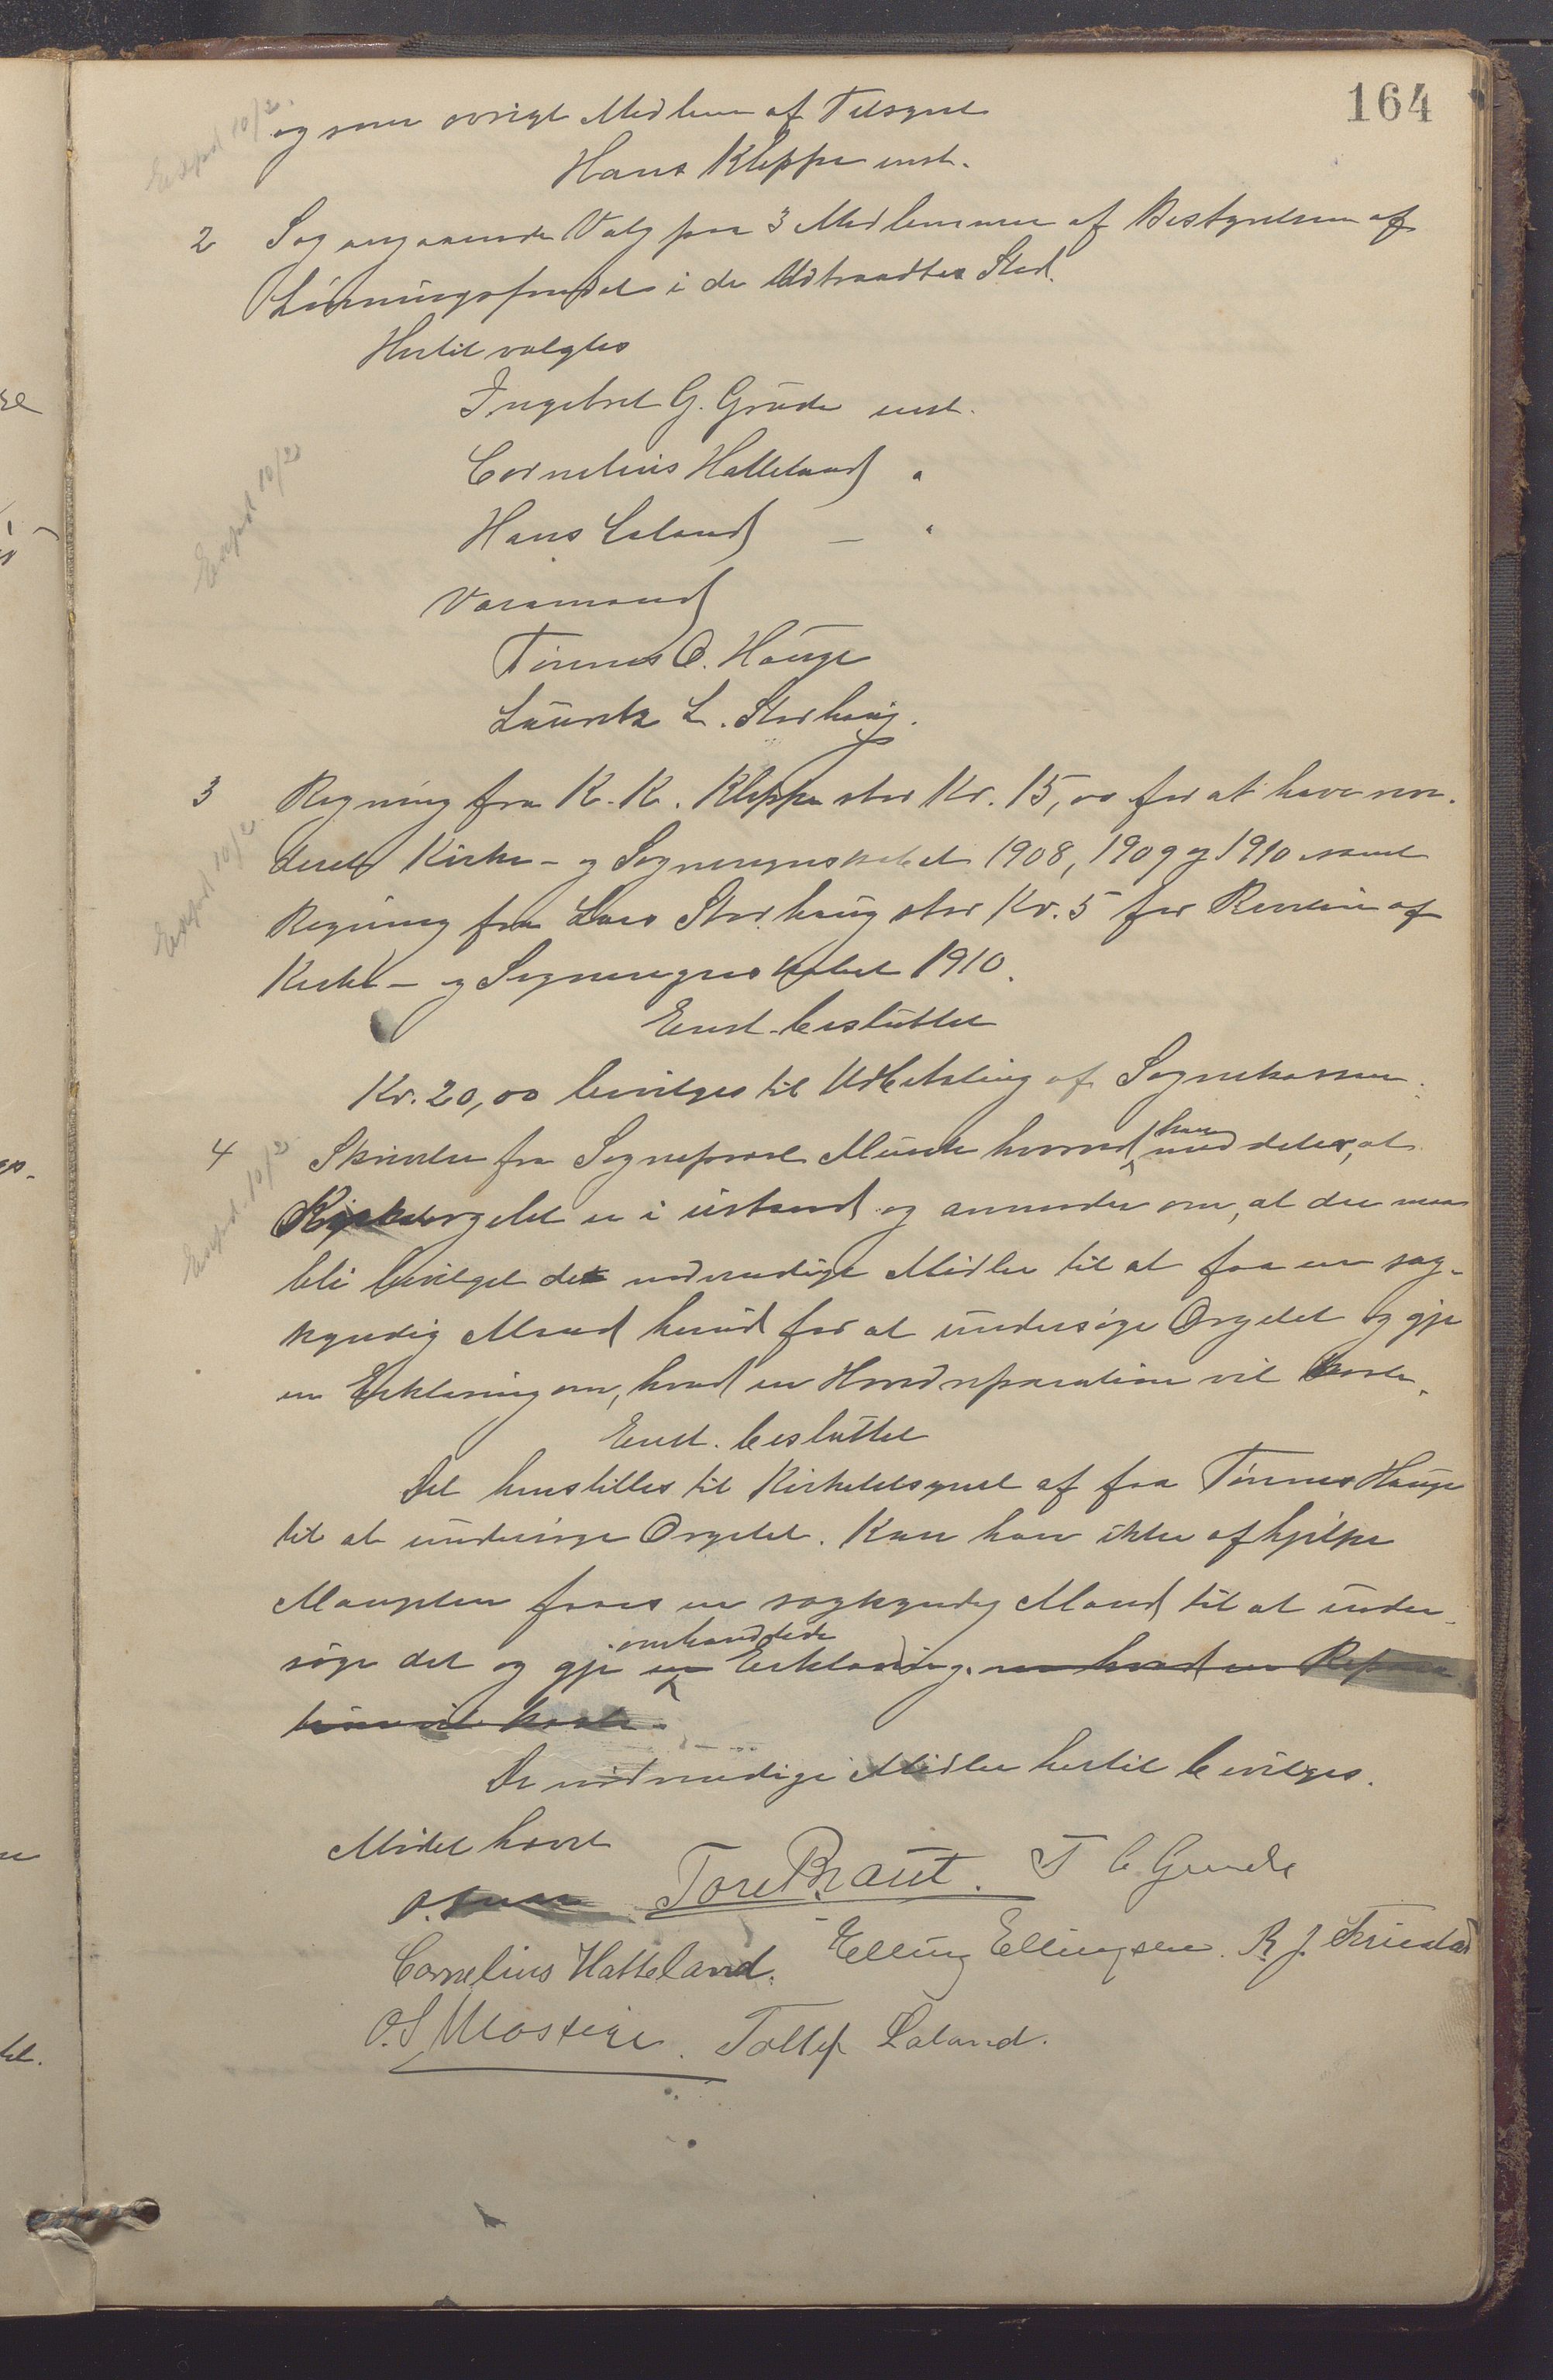 164
Exped 10/2.
og som øvrigt Medlem af Tilsynet
Hans Kleppe enst.
2 Sag angaaende Valg paa 3 Medlemmer af Bestyrelsen af
Lønningsfondet i de Udtraadtes Sted.
Hertil valgtes
Ingebret G. Grude enst.
Cornelius Hatteland "
Hans Laland — "
Exped 10/2
Varamænd
Tønnes O. Hauge
Lauritz L. Storhaug.
3 Regning fra K. K. Kleppe stor Kr. 15,00 for at have revi-
deret Kirke- og Sogneregnskabet 1908, 1909 og 1910 samt
Exped 10/2
Regning fra Lars Storhaug stor Kr. 5 for Revision af
Kirke- og Sogneregnskabet 1910.
Enst. besluttet
Kr. 20,00 bevilges til Udbetaling af Sognekassen.
4 Skrivelse fra Sogneprest Munch hvorved han meddeler, at
Exped. 10/2
Kirkeorgelet er i ustand og anmoder om, at der maa
bli bevilget de nødvendige Midler til at faa en sag-
kyndig Mand herud for at undersøge Orgelet og gje
en Erklæring om, hvad en Hovedreparation vil koste.
Enst. besluttet
Det henstilles til Kirketilsynet af faa Tønnes Hauge
til at undersøge Orgelet. Kan han ikke afhjelpe
Manglen faaes en sagkyndig Mand til at under-
søge det og gje en omhandlede Erklæring. om hvad en Repara
tion vil koste.
De nødvendige Midler hertil bevilges.
Mødet hævet
Tore Braut. T C Grude
Cornelius Hatteland. Elling Ellingsen. R J. Friestad
O. S. Mossige. Tollef Laland.